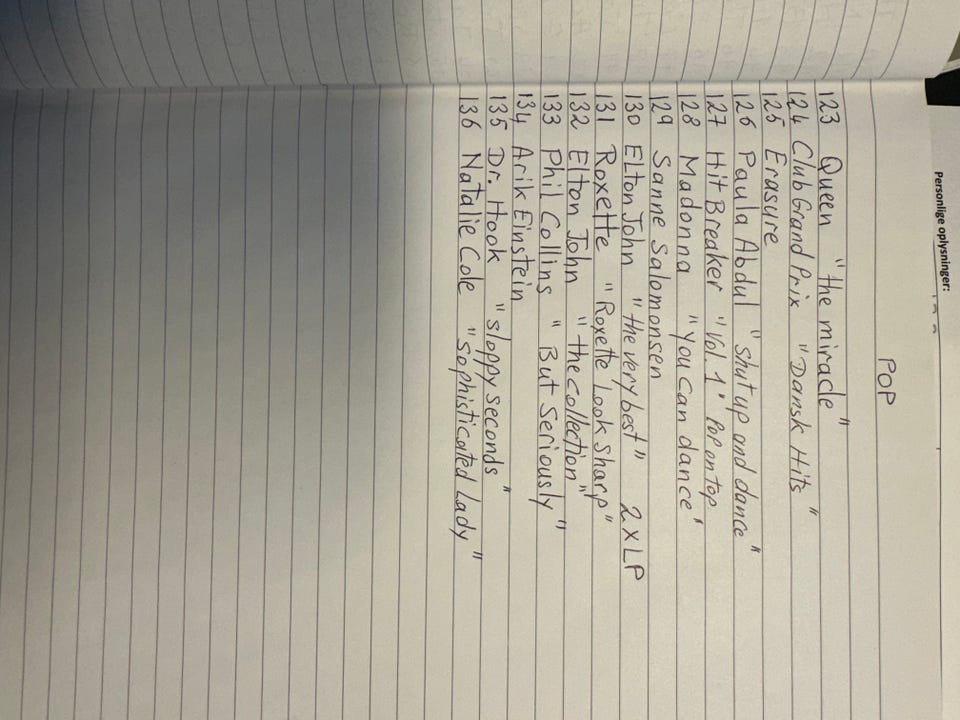 Personlige oplysninger:
POP
123 Queen "the miracle"
124 Club Grand Prix "Dansk Hits"
125 Erasure
126 Paula Abdul "shut up and dance"
127 Hit Breaker "Vol. 1" Pop on top
128 Madonna "you can dance"
129 Sanne Salomonsen
130 ELton John "the very best" 2 x LP
131 Roxette "Roxette, Look sharp"
132 Elton John "the collection"
133 Phil Collins "But Seriously"
134 Arik Einstein
135 Dr. Hook "sloppy seconds"
136 Natalie Cole "Sophisticated Lady"